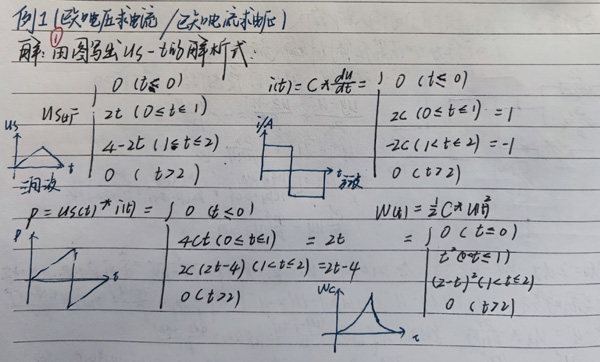 例1(已知电压求电流/已知电流求电压)
解:①由图写出us-t的解析式:
us(t)=
0 (t≤0)
2t (0≤t≤1)
4-2t (1≤t≤2)
0 (t>2)
us
t
三角波
i(t)=C*du/dt=
0 (t≤0)
2C (0≤t≤1) =1
-2C (1<t≤2) =-1
0 (t>2)
i/A
t
P=us(t)*i(t)=
0 (t≤0)
4Ct (0≤t≤1) =2t
2C(2t-4) (1<t≤2) =2t-4
0 (t>2)
P
t
W(t)=½C*u(t)²
=
0 (t≤0)
t² (0<t≤1)
(2-t)² (1<t≤2)
0 (t>2)
Wc
t